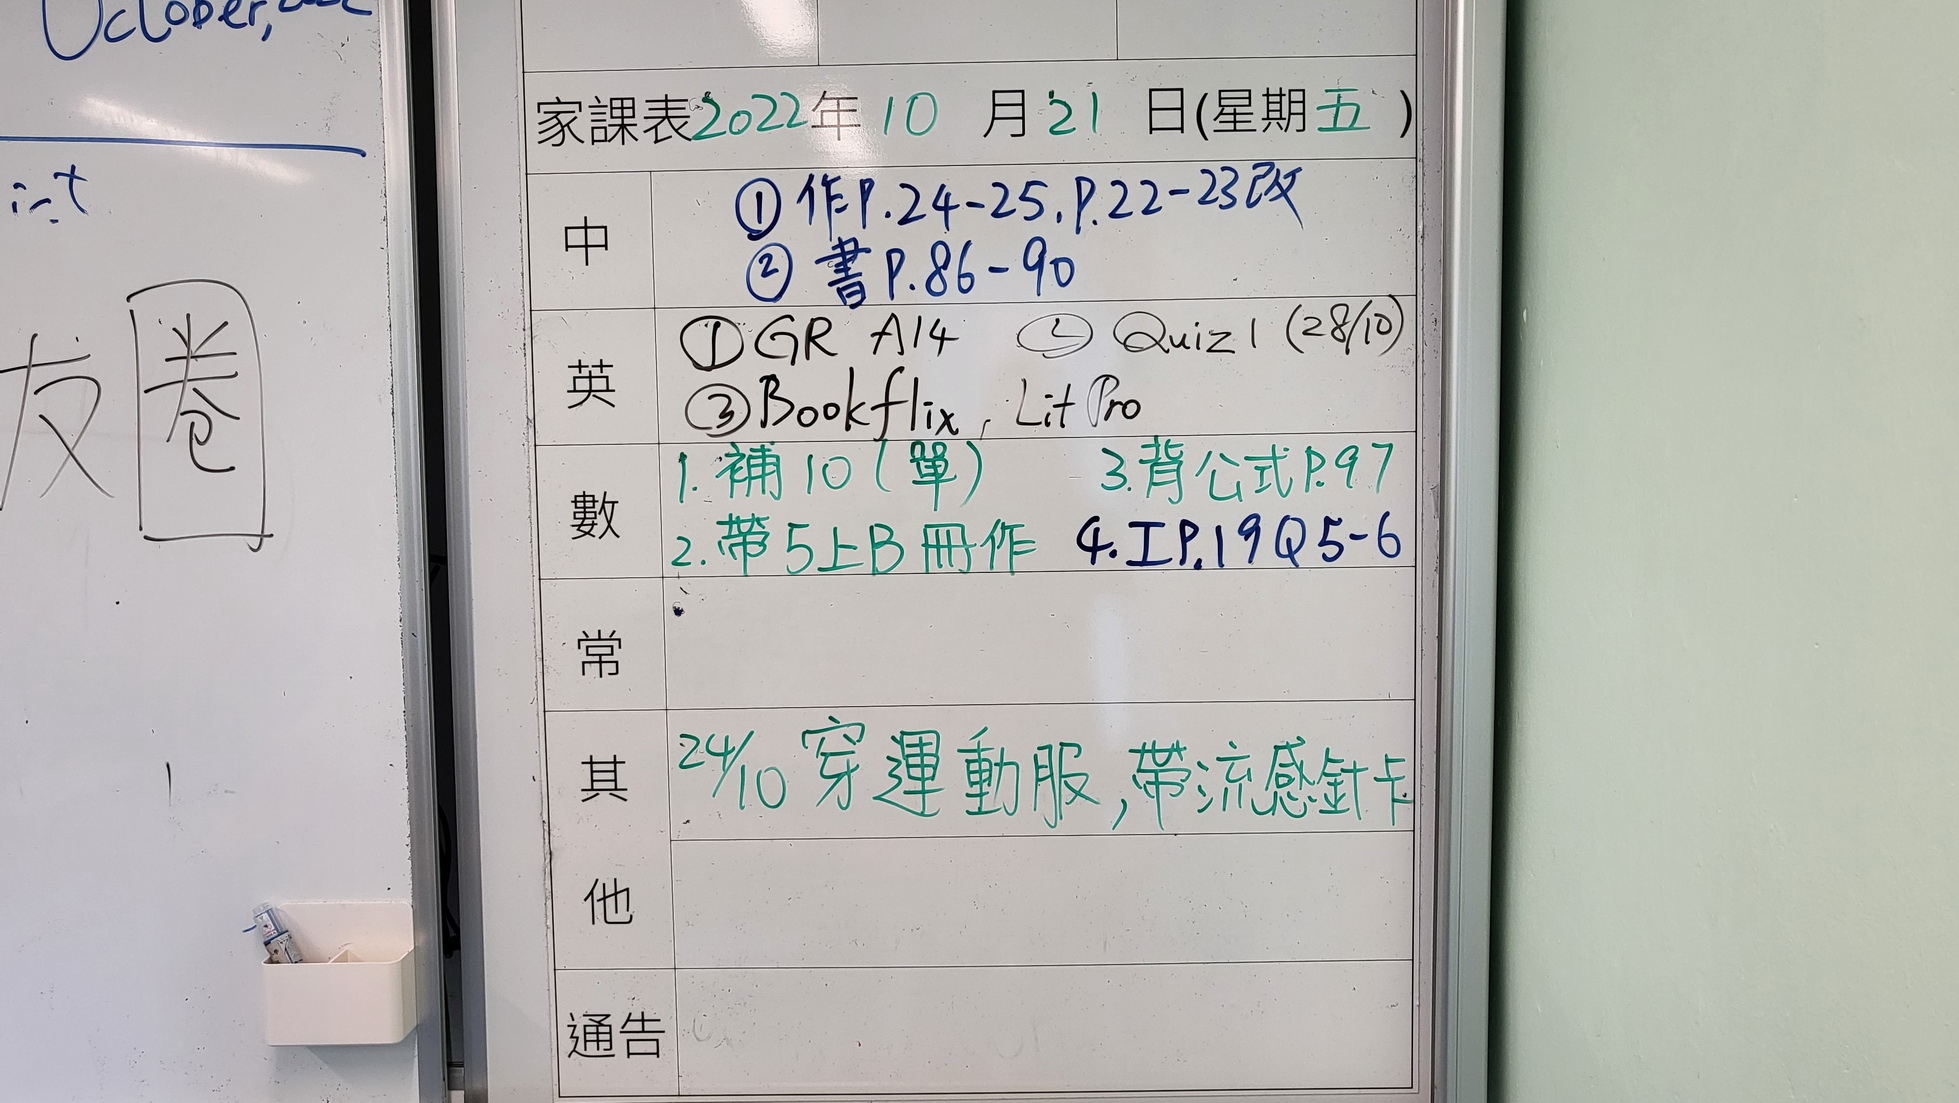 October,
int
友圈
家課表2022年10月21日(星期五)
中
①作P.24-25,P.22-23改
②書P.86-90
英
①GR A14 ②Quiz1(28/10)
③Bookflix, LitPro
數
1.補10(單) 3.背公式P.97
2.帶5上B冊作 4.工P.19Q5-6
常
其他
24/10穿運動服,帶流感針卡
通告